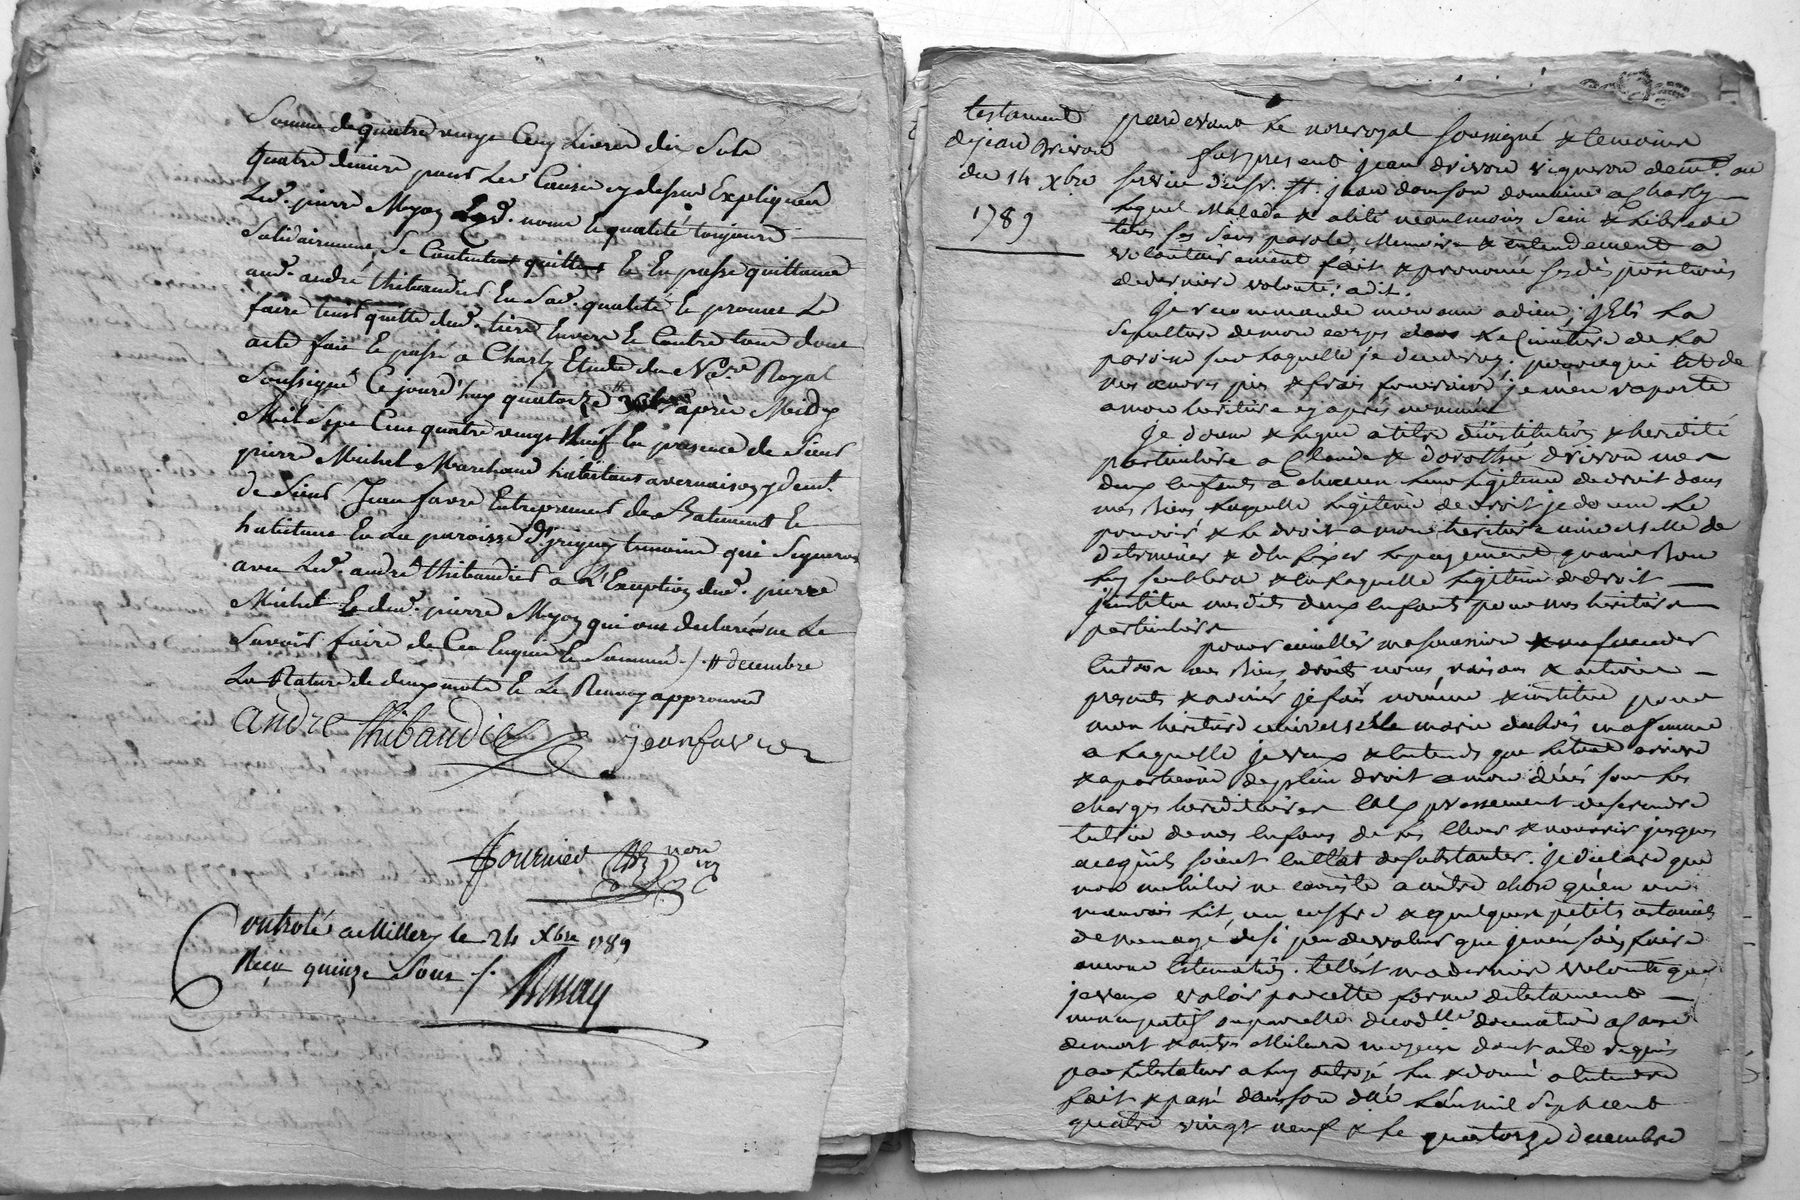 Somme de quatre vingt Cinq Livres dix Sols
quatre deniers pour Les Causes cy dessus Expliquées
Led. pierre Mayoz esd. nom & qualité toujours
Solidairement Se Contentent quittent & En passe quittance
aud. andré thibaudier En Sad. qualité & promet Le
faire tenir quitte dud. tiers Envers & Contre tous dont
acte fait & passé a Charly Etude du No.re Royal
Soussigné Ce jourd'huy quatorze après Midy
Mil Sept Cent quatre vingt Neuf En presence de Sieur
pierre Michel Marchand habitant a vernaison y demt.
de Sieur Jean favre Entrepreneur de Batiments &
habitant En La paroisse d'jrigny temoins qui Signeront
avec Led. andré thibaudier a L'Exception dud. pierre
Michel & dud. pierre Mayoz qui ont declaré ne Le
Savoir faire de Ce Enquis & Sommés ./. # decembre
La Rature de deux mots & Le Renvoy approuvés
andré thibaudier jean favre
fournier
Controlé a Millery le 24 Xbre 1789
Reçu quinze Sous ./.
testament
de jean Drivon
du 14 Xbre
1789
pardevant Le no.re royal soussigné & temoins
fut present jean drivon vigneron demt. au
service du sr. jean domaine a Charly
Lequel Malade & alité neanmoins Sain & Libre de
tous ses Sens parole, Memoire & entendement a
volontairement fait & prononcé ses dispositions
de derniere volonté: a dit:
je recommande mon ame a dieu; j'Elis La
Sepulture de mon corps dans Le Cimetiere de La
paroisse sur Laquelle je decederay; pour ce qui est de
mes œuvres pies & frais funeraires je m'en raporte
a mon heritiere cy après nommée
je donne & Legue a titre d'institution & heredité
particuliere a Claude & dorothée drivon mes
deux Enfants a chacun Leur Legitime de droit dans
mes Biens Laquelle Legitime de droit je donne Le
pouvoir & Le droit a mon heritiere universelle de
determiner & d'En fixer Le payement quand Bon
Luy semblera & En Laquelle Legitime de droit
j'institue mesdits deux Enfants pour mes heritiers
particuliers
pour cueillir ma succession
tous mes Biens droits noms raisons & actions
presents & avenir je fais nomme & institue pour
mon heritiere universelle marie ma femme
a Laquelle je veux & Entends que Le tout arrive
& apartienne de plein droit a mon décès sous Les
charges hereditaires & Expressement de prendre
tutrice de mes Enfans de Les Elever & nourrir jusques
acequ'ils soient En Etat de substanter. je declare que
mon mobilier ne consiste a autre chose qu'en un
mauvais Lit, un coffre & quelques petits ustancils
de menage de si peu de valeur que je n'en sais faire
aucune Estimation. telle Est ma derniere volonté que
je veux valoir par cette forme de testament
nuncupatif ou par celle de codille donnation a cause
de mort & autre Meilleure moyen dont acte requis
par Le testateur a luy octroyé Lu & donné a Entendre
fait & passé dans son L'an mil Sept Cent
quatre vingt neuf & Le quatorze decembre